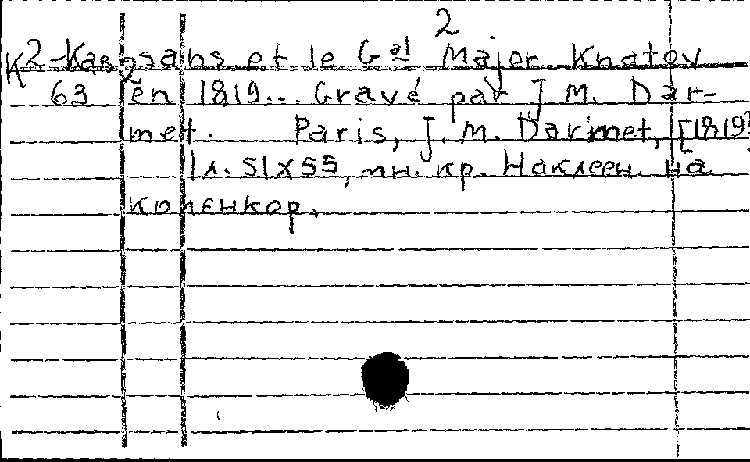 2
К2-Кав2 sans et le Gal Major Knatov
63 en 1819... Gravé par J. M. Dar-
met. Paris, J. M. Darmet, [1819]
1л. 51x55, ин. кр. Наклеен на
коленкор.